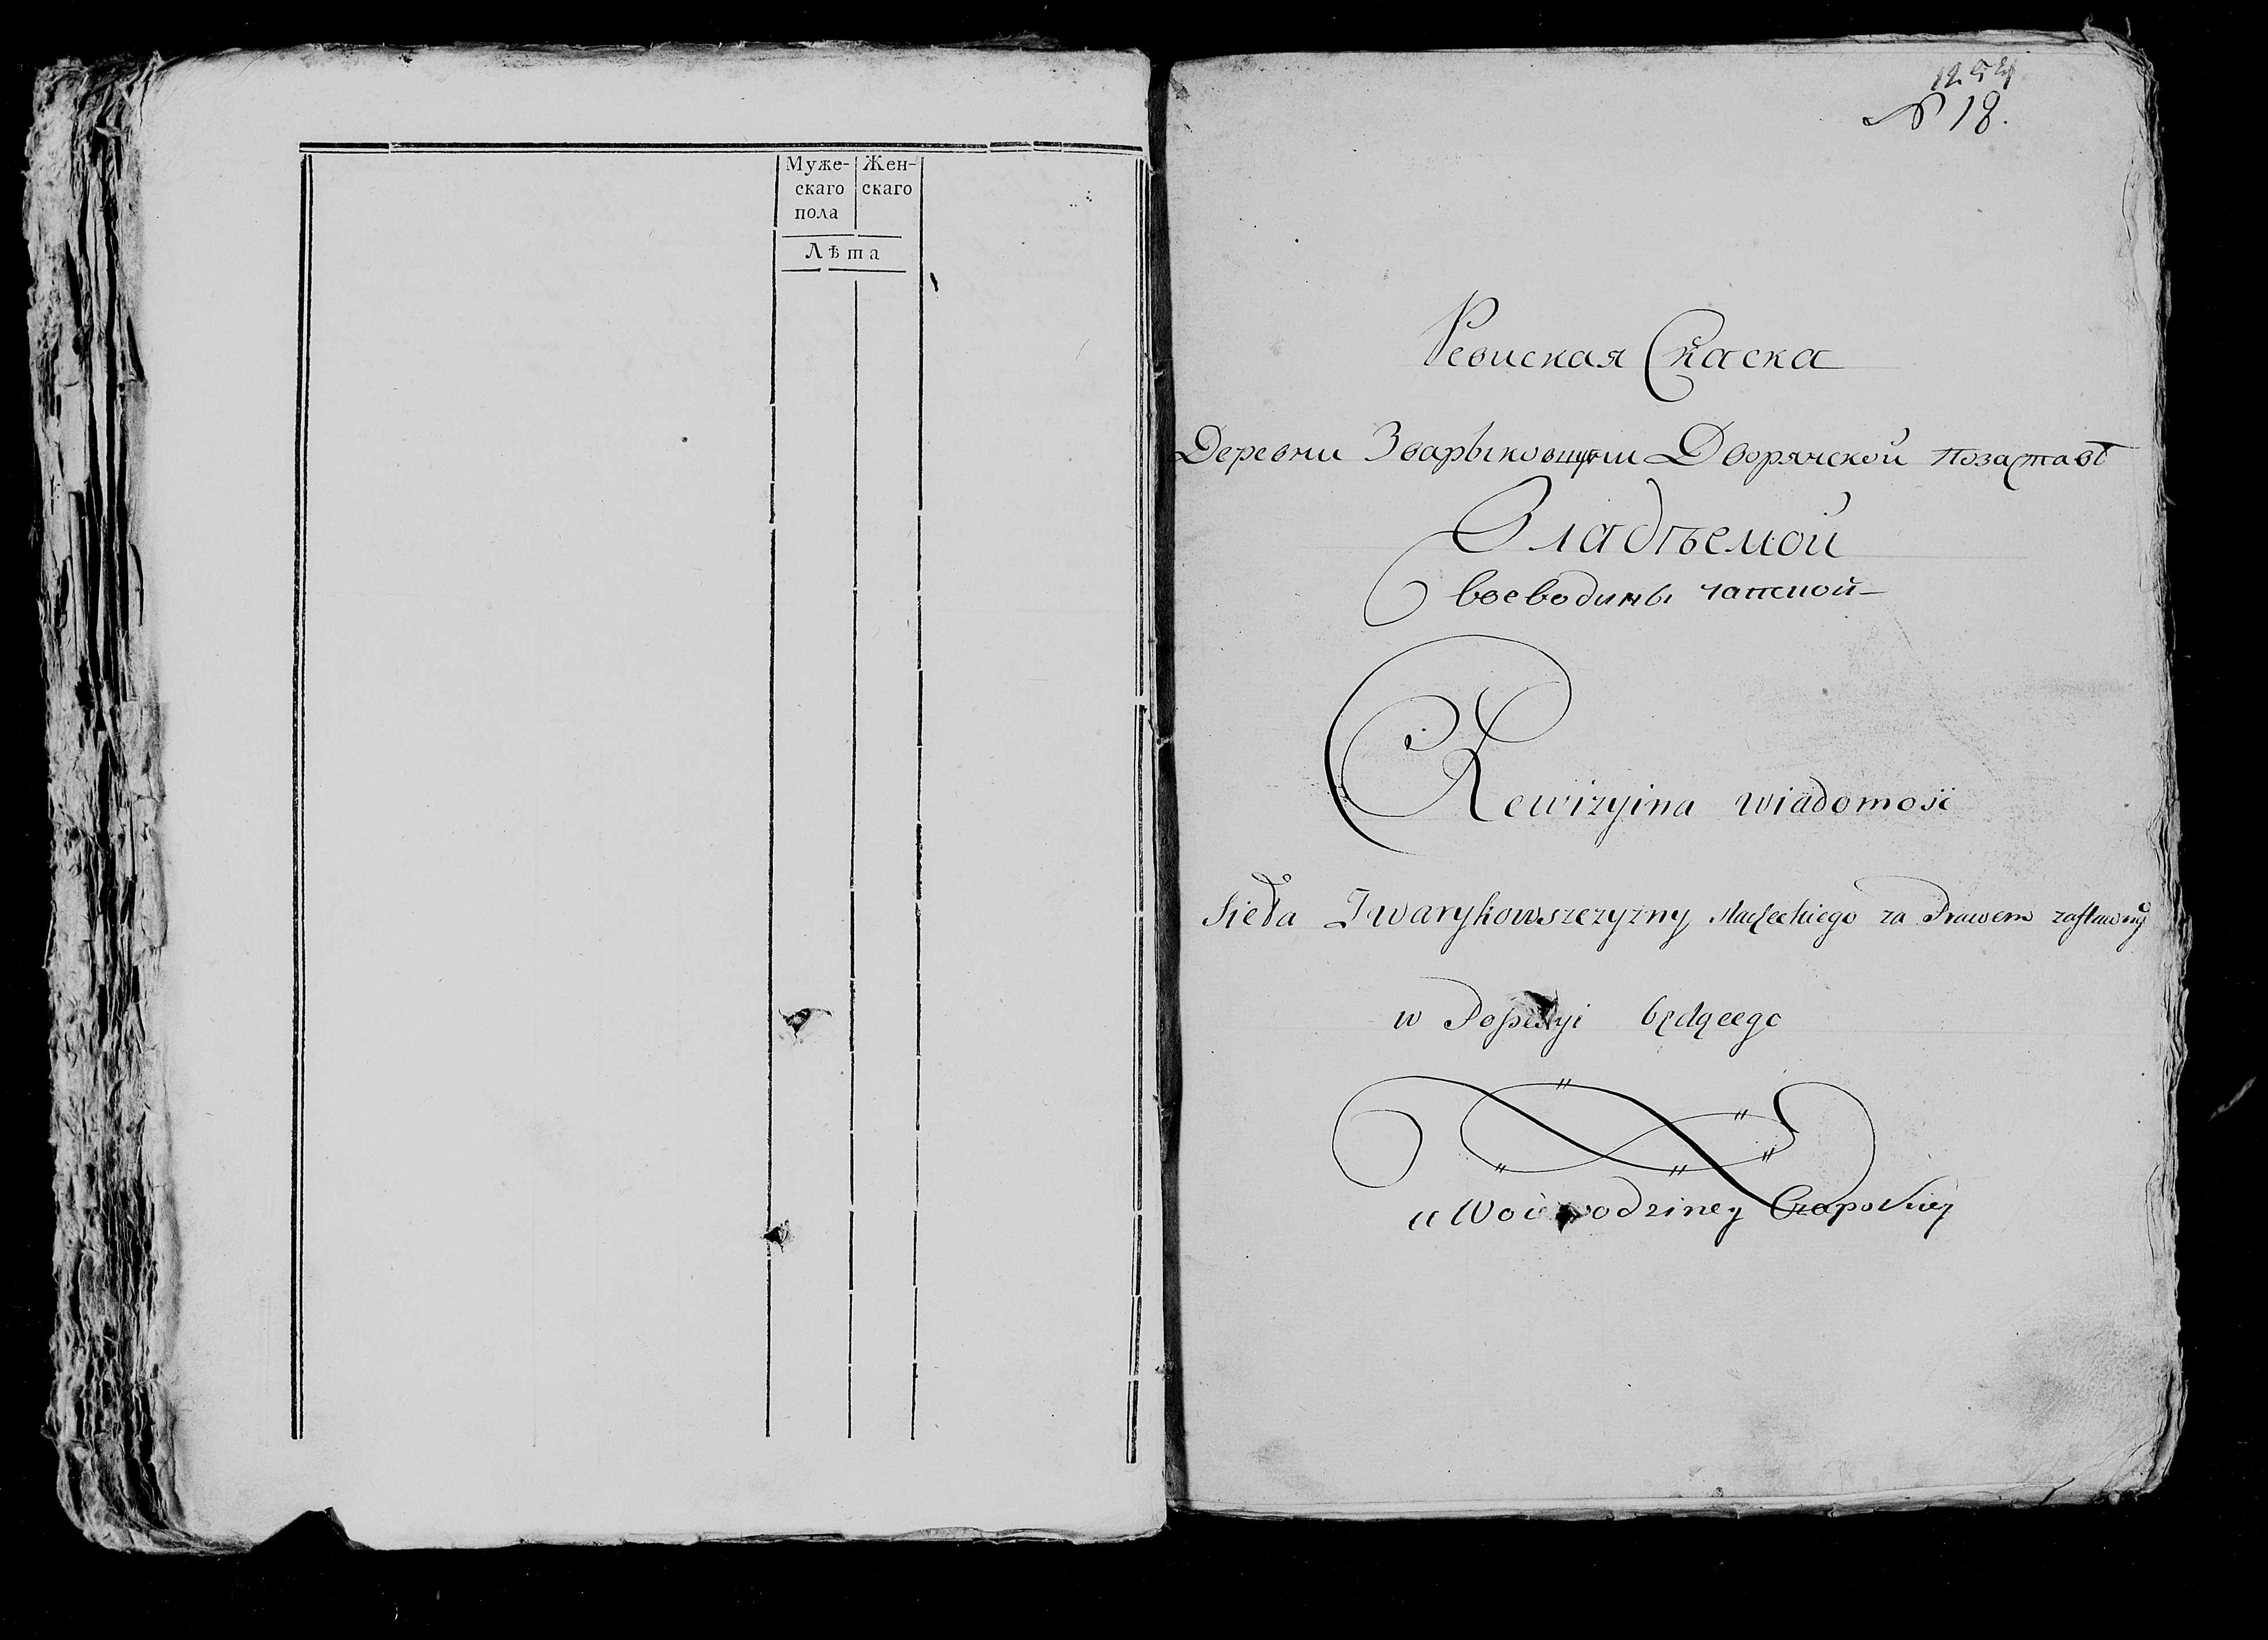 Муже-
скаго
пола
Жен-
скаго
Лѣта
1254
№ 18.
Ревиская Скаска
Деревни Зварыковщизни Дворянской позаставѣ
Владѣемой
воеводины
Rewizyina wiadomość
Sieła Zwarykowszczyzny szlacheckiego za Prawem zastawnym
w Possessyi będącego
u Woiewodziney Czapskiey